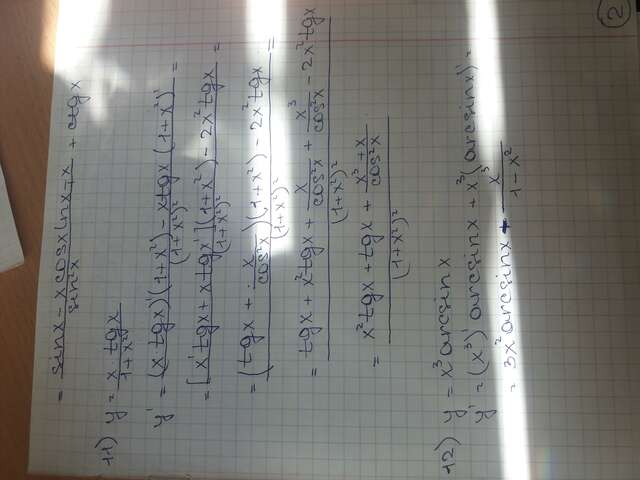 ②
= (sinx - x cosx lnx - x)/(sin²x) + ctgx
11) y = (x tgx)/(1+x²)
y' = ((x tgx)'(1+x²) - x tgx (1+x²)')/(1+x²)² =
= ([x' tgx + x tgx'](1+x²) - 2x² tgx)/(1+x²)² =
= ((tgx + x/cos²x)(1+x²) - 2x² tgx)/(1+x²)² =
= (tgx + x² tgx + x/cos²x + x³/cos²x - 2x² tgx)/(1+x²)²
= (x² tgx + tgx + (x³ + x)/cos²x)/(1+x²)²
12) y = x³ arcsinx
y' = (x³)' arcsinx + x³ (arcsinx)' =
= 3x² arcsinx - x³/(1-x²)